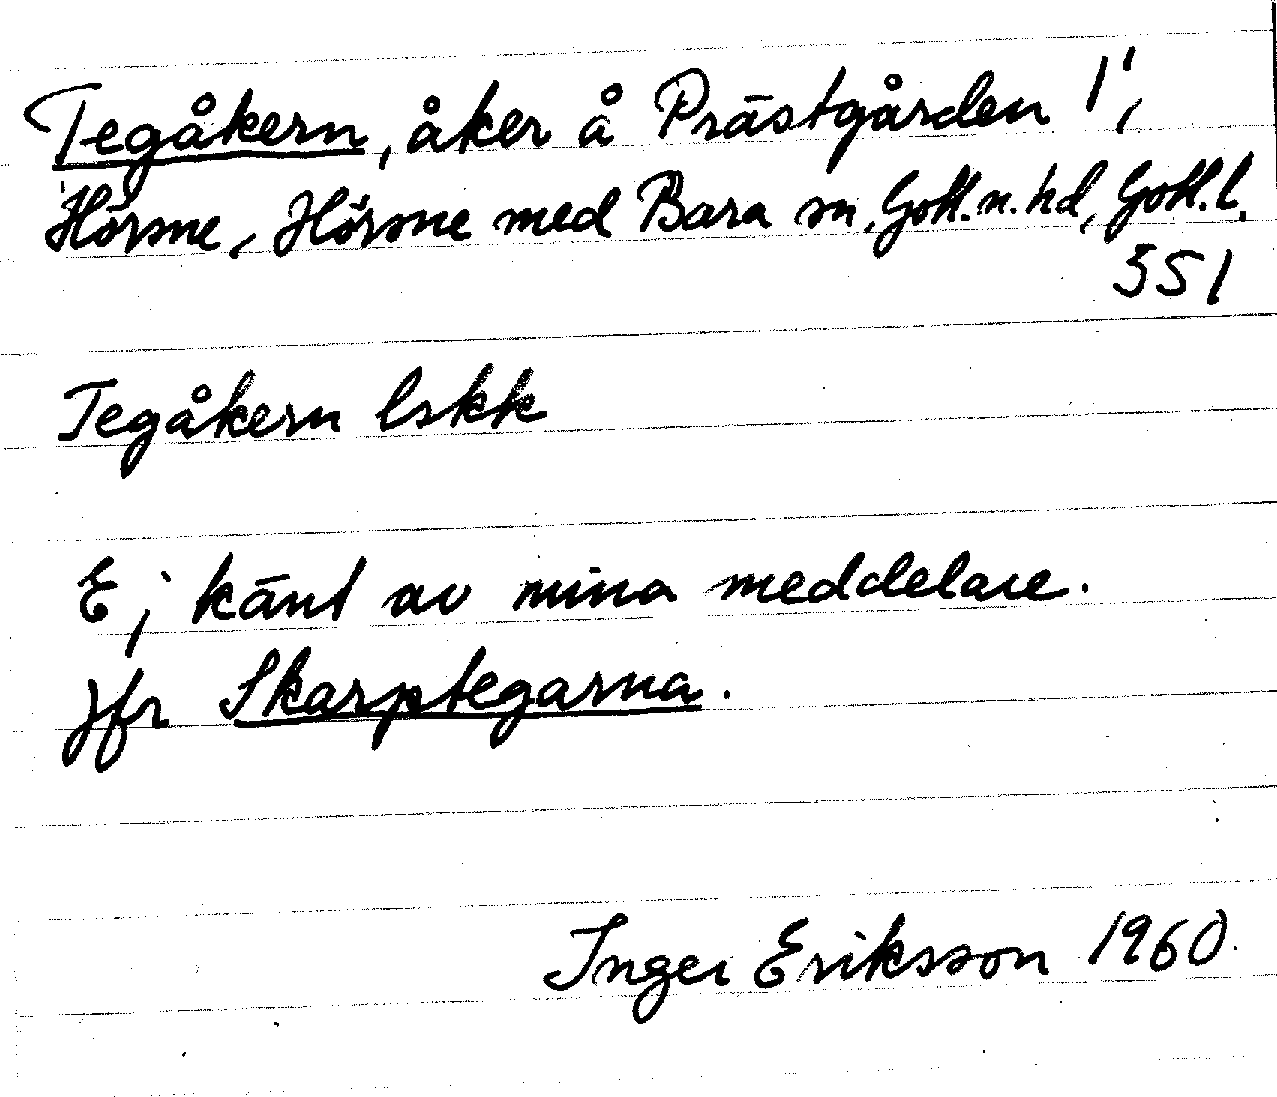 Tegåkern, åker å Prästgården 1¹,
Hörsne, Hörsne med Bara sn, Gotl. n. hd, Gotl. l.
351
Tegåkern lskk
Ej känt av mina meddelare.
Jfr Skarptegarna.
Inger Eriksson 1960.